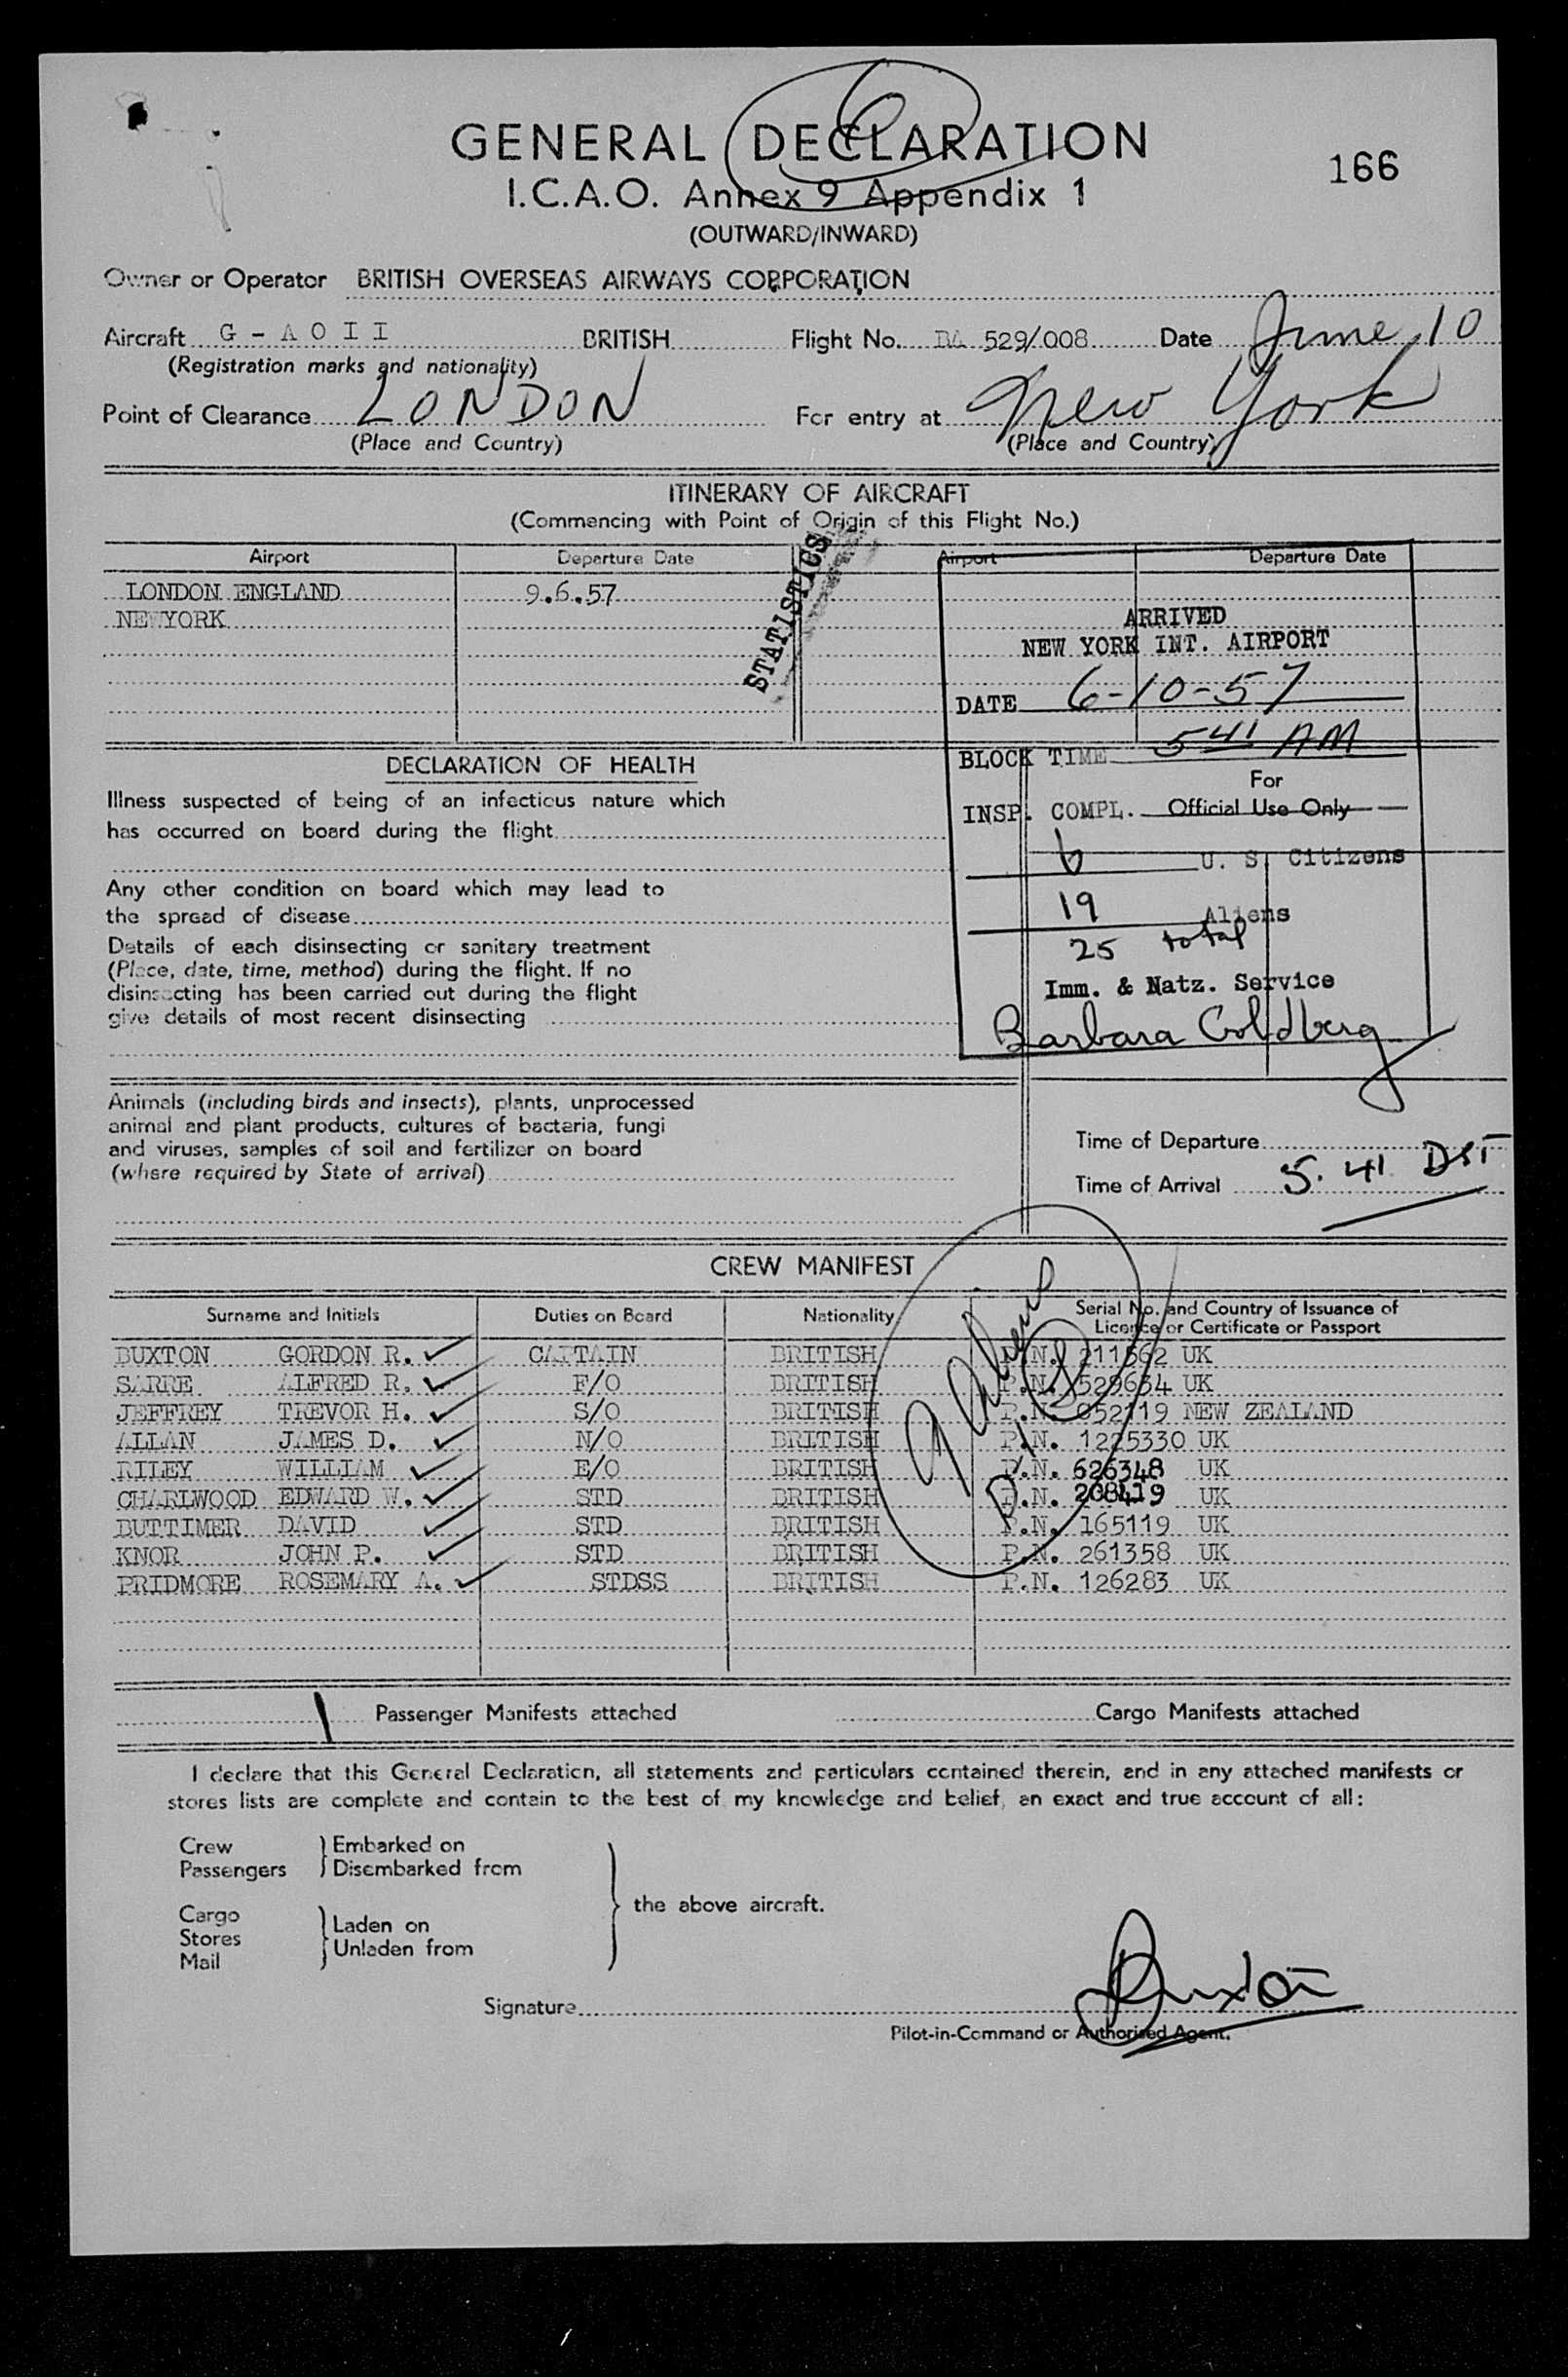 6
GENERAL DECLARATION
166
I.C.A.O. Annex 9 Appendix 1
(OUTWARD/INWARD)
Owner or Operator BRITISH OVERSEAS AIRWAYS CORPORATION
Aircraft G - A O I I BRITISH Flight No. BA 529/008 Date June 10
(Registration marks and nationality)
Point of Clearance LONDON For entry at New York
(Place and Country) (Place and Country)
ITINERARY OF AIRCRAFT
(Commencing with Point of Origin of this Flight No.)
Airport Departure Date Airport Departure Date
LONDON ENGLAND 9.6.57
NEWYORK
STATISTICS
ARRIVED
NEW YORK INT. AIRPORT
DATE 6-10-57
BLOCK TIME 541 AM
For
INSP. COMPL. Official Use Only
6 U. S. Citizens
19 Aliens
25 total
Imm. & Natz. Service
Barbara Goldberg
DECLARATION OF HEALTH
Illness suspected of being of an infectious nature which
has occurred on board during the flight
Any other condition on board which may lead to
the spread of disease
Details of each disinsecting or sanitary treatment
(Place, date, time, method) during the flight. If no
disinsecting has been carried out during the flight
give details of most recent disinsecting
Animals (including birds and insects), plants, unprocessed
animal and plant products, cultures of bacteria, fungi
and viruses, samples of soil and fertilizer on board
(where required by State of arrival)
Time of Departure
Time of Arrival 5.41 DST
CREW MANIFEST
Surname and Initials Duties on Board Nationality Serial No. and Country of Issuance of
Licence or Certificate or Passport
BUXTON GORDON R. CAPTAIN BRITISH P.N. 211562 UK
SARRE ALFRED R. F/O BRITISH P.N. 529634 UK
JEFFREY TREVOR H. S/O BRITISH P.N. 052119 NEW ZEALAND
ALLAN JAMES D. N/O BRITISH P.N. 1225330 UK
RILEY WILLIAM E/O BRITISH P.N. 626348 UK
CHARLWOOD EDWARD W. STD BRITISH P.N. 208419 UK
BUTTIMER DAVID STD BRITISH P.N. 165119 UK
KNOR JOHN P. STD BRITISH P.N. 261358 UK
PRIDMORE ROSEMARY A. STDSS BRITISH P.N. 126283 UK
9 Aliens
1 Passenger Manifests attached Cargo Manifests attached
I declare that this General Declaration, all statements and particulars contained therein, and in any attached manifests or
stores lists are complete and contain to the best of my knowledge and belief, an exact and true account of all:
Crew Embarked on
Passengers Disembarked from
the above aircraft.
Cargo Laden on
Stores
Unladen from
Mail
Signature Buxton
Pilot-in-Command or Authorised Agent.